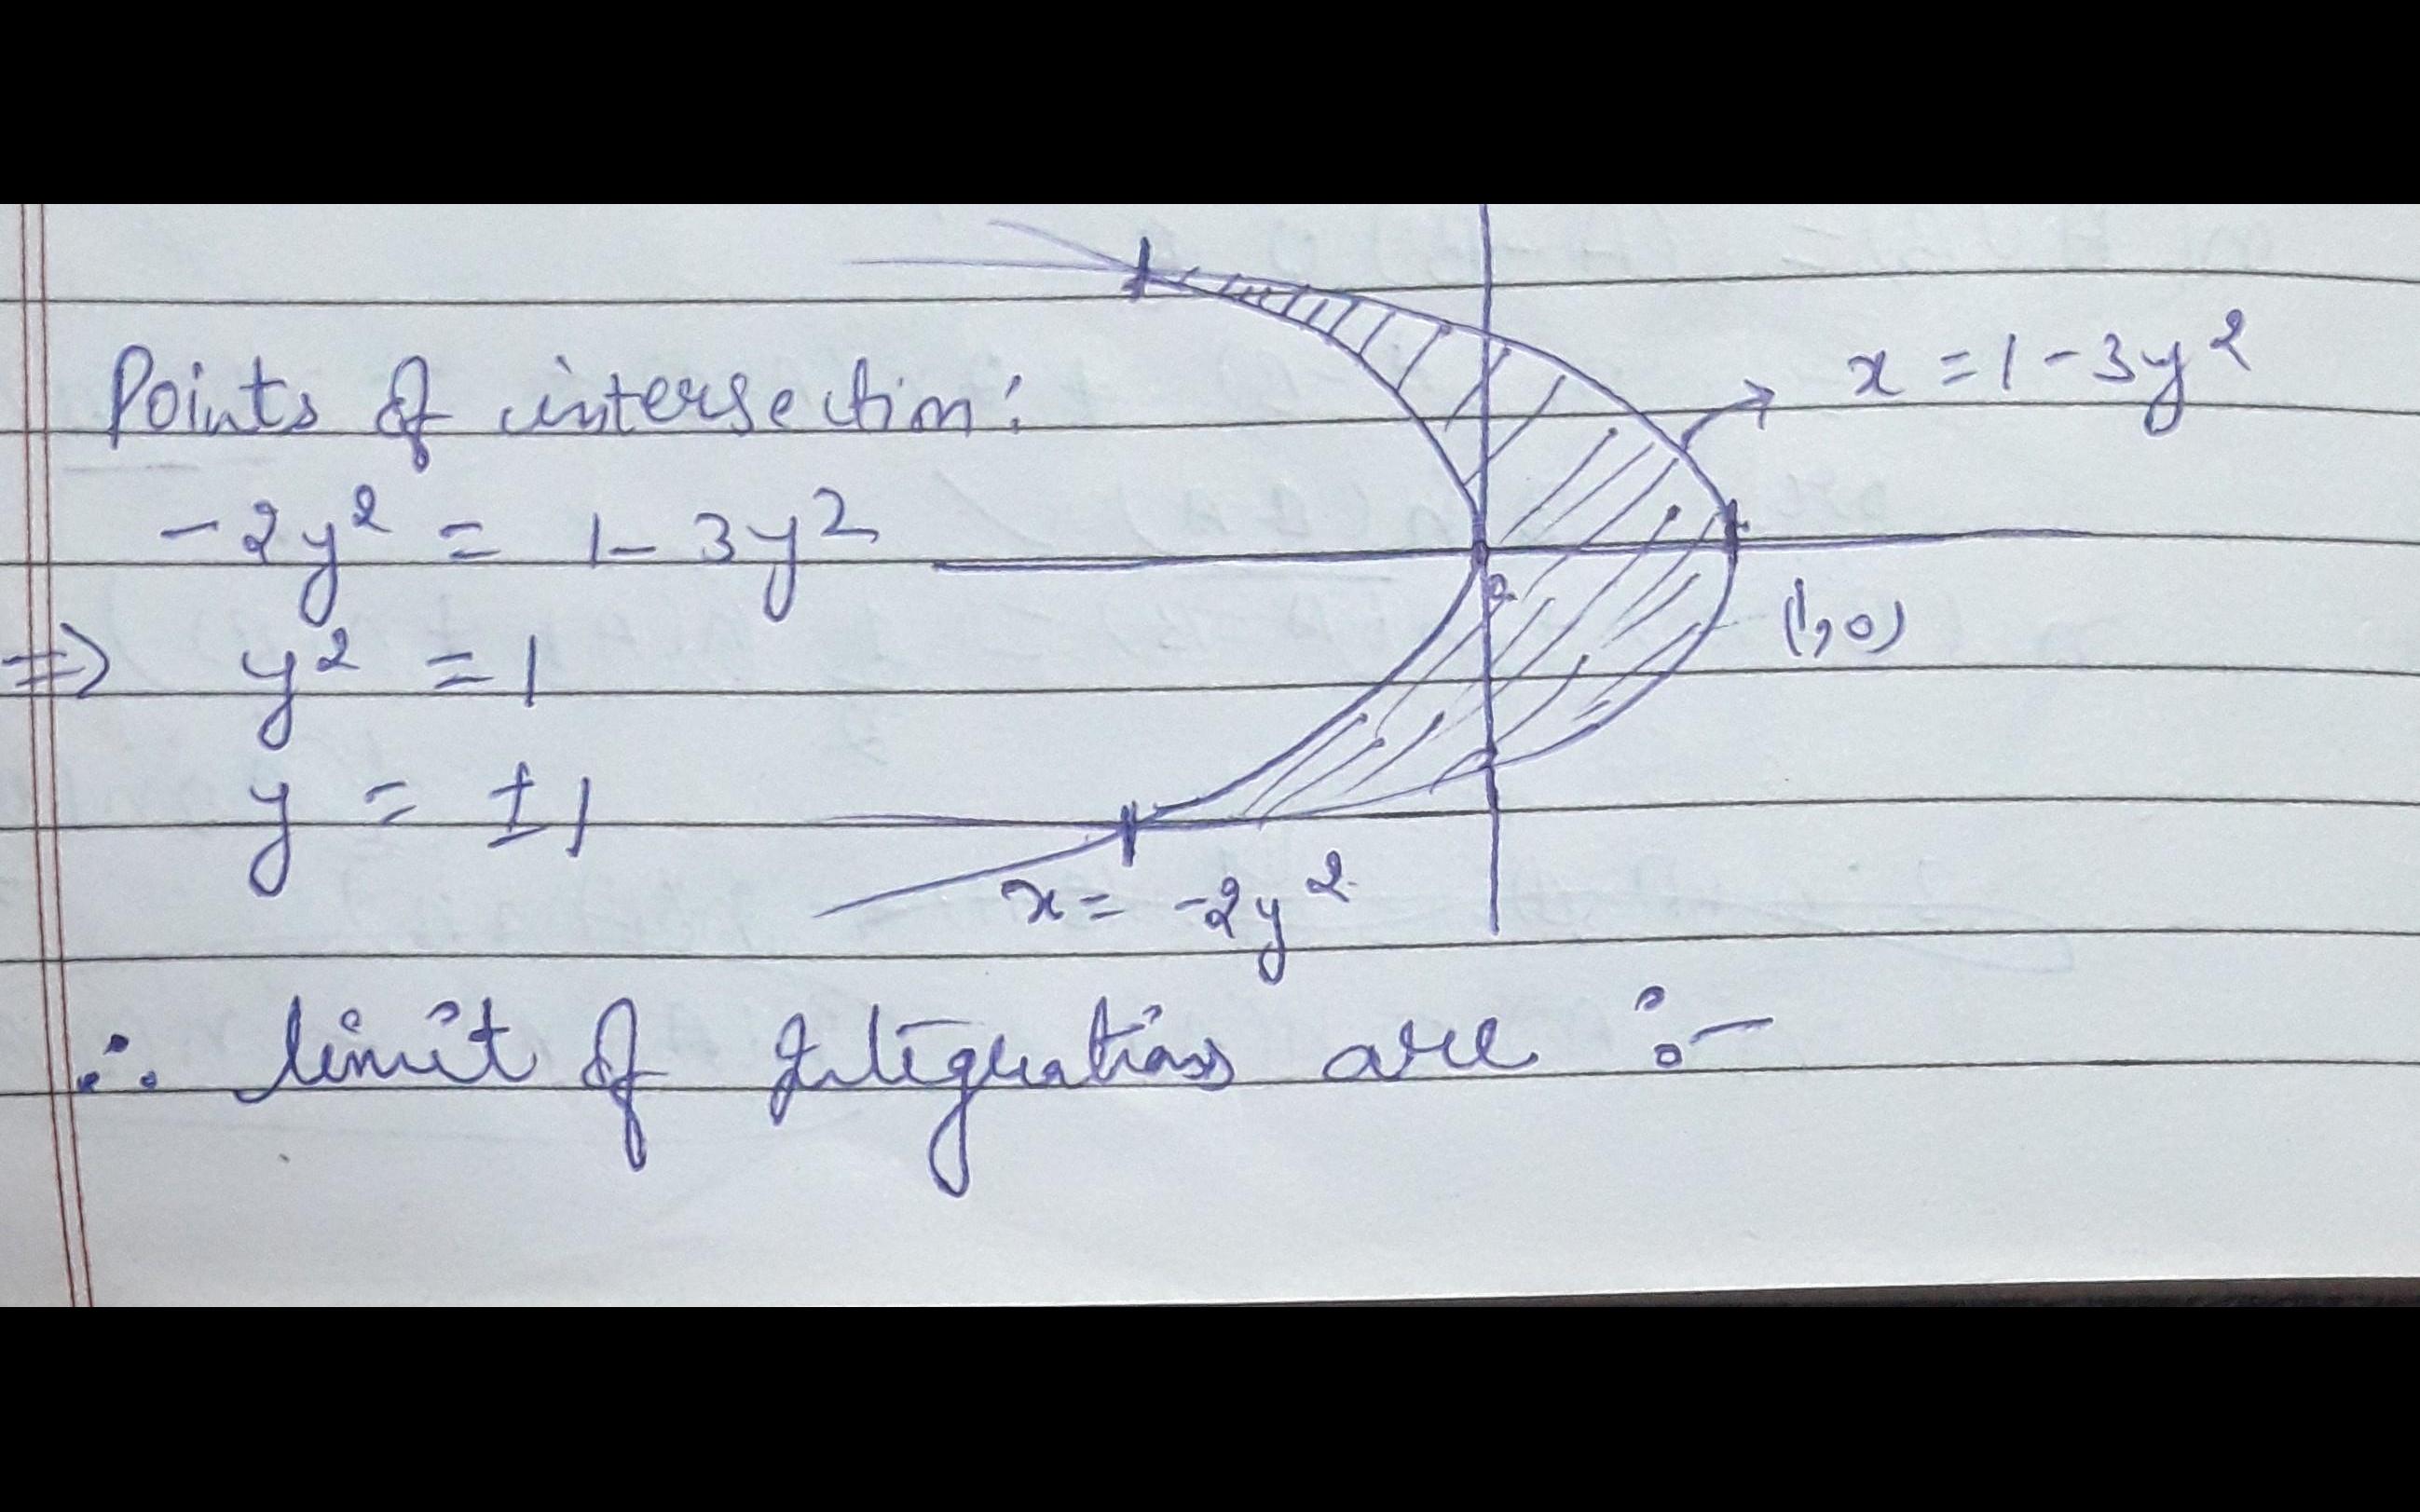 Points of intersection:
x = 1 - 3y²
-2y² = 1 - 3y²
⇒ y² = 1
(1,0)
y = ±1
x = -2y²
∴ limit of Integrations are :-